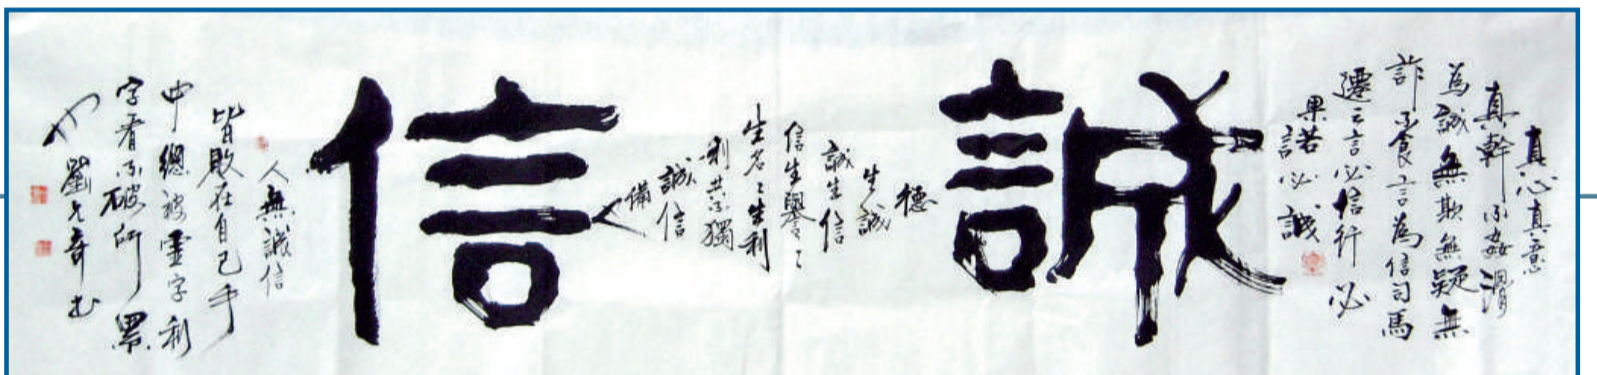 真心真意
真幹不姦滑
為誠無欺無疑無
詐不食言為信司馬
遷云言必信行必
果若諾必誠
誠
德
生誠
誠生信
信生譽〻
生名〻生利
利共不獨
誠信
備
信
人無誠信
皆敗在自己手
中總被霊字利
字看不破所累
也劉